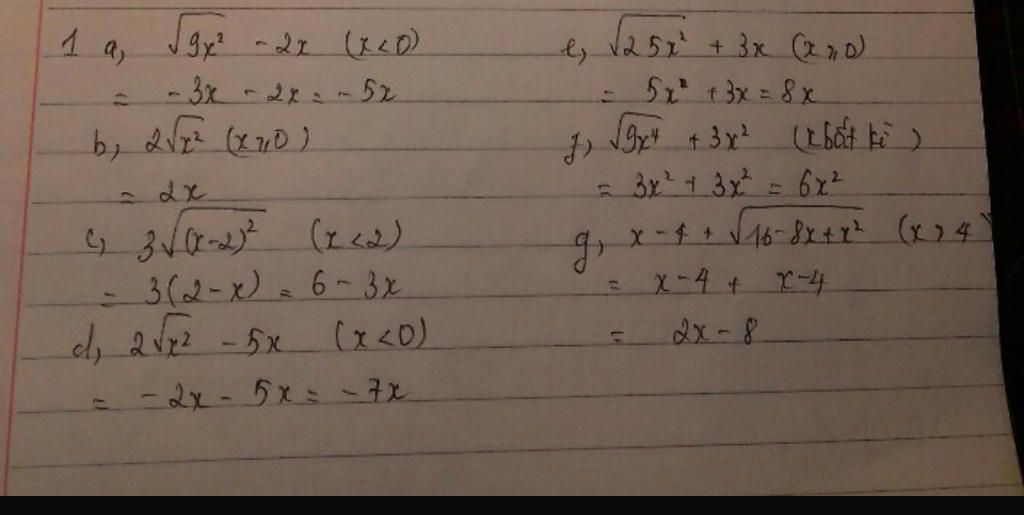 1 a, √9x² - 2x (x<0)
= -3x - 2x = -5x
b, 2√x² (x⩾0)
= 2x
c, 3√(x-2)² (x<2)
= 3(2-x) = 6 - 3x
d, 2√x² - 5x (x<0)
= -2x - 5x = -7x
e, √25x² + 3x (x⩾0)
= 5x + 3x = 8x
f, √9x⁴ + 3x² (x bất kì)
= 3x² + 3x² = 6x²
g, x-4 + √16-8x+x² (x > 4
= x-4 + x-4
= 2x - 8